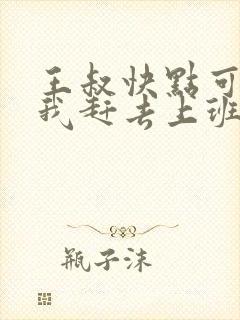 王叔快點可
我赶去上班
瓶子沫